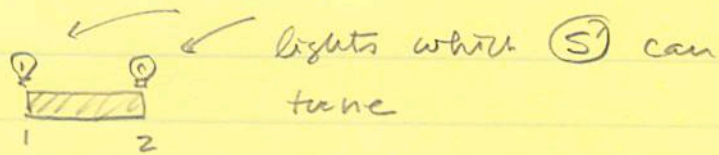 lights which (S) can
tune
1 2